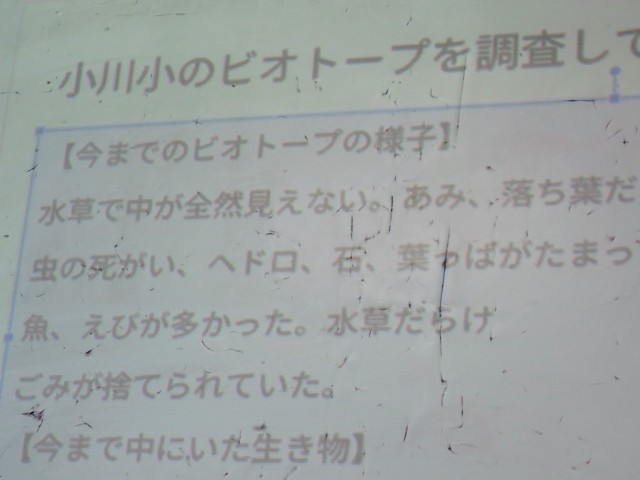 小川小のビオトープを調査して
【今までのビオトープの様子】
水草で中が全然見えない。あみ、落ち葉だ
虫の死がい、ヘドロ、石、葉っぱがたまっ
魚、えびが多かった。水草だらけ
ごみが捨てられていた。
【今まで中にいた生き物】